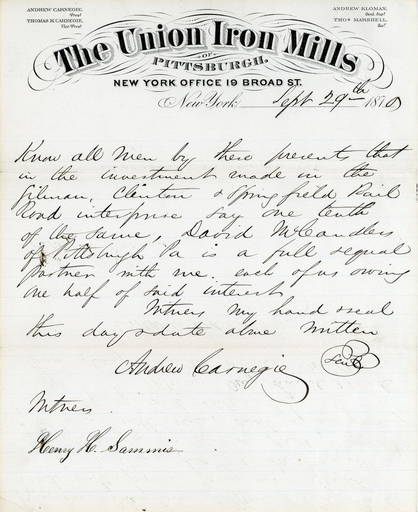 ANDREW CARNEGIE,
Prest
THOMAS M. CARNEGIE,
Vice Prest
ANDREW KLOMAN,
Genl. Supt
THOS MARSHELL,
Sec'y
The Union Iron Mills
OF
PITTSBURGH.
NEW YORK OFFICE 19 BROAD ST.
New York, Sept 29th 1870
Know all Men by these presents that
in the investment made in the
Gilman, Clinton & Springfield Rail
Road interprise say one tenth
of the same, David McCandless
of Pittsburgh Pa is a full & equal
partner with me. each of us owing
one half of said interest
Witness my hand & seal
this day & date above written
Andrew Carnegie
Seal
Witness
Henry H. Sammis